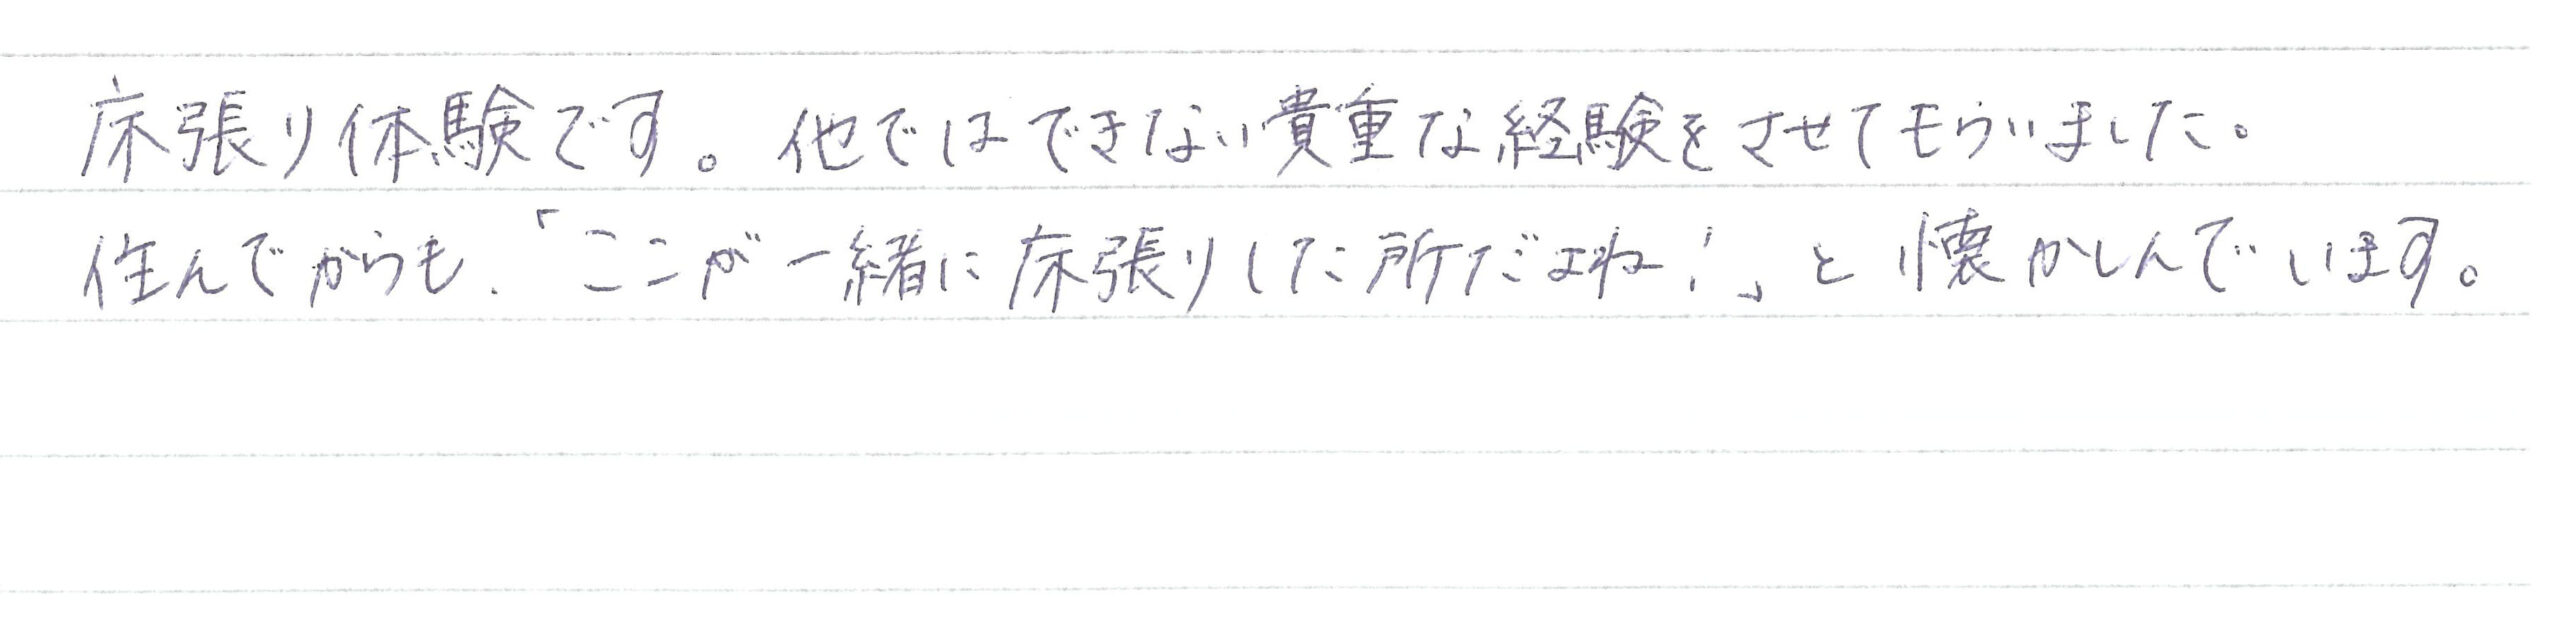 床張り体験です。他ではできない貴重な経験をさせてもらいました。
住んでからも、「ここが一緒に床張りした所だよね!」と懐かしんでいます。